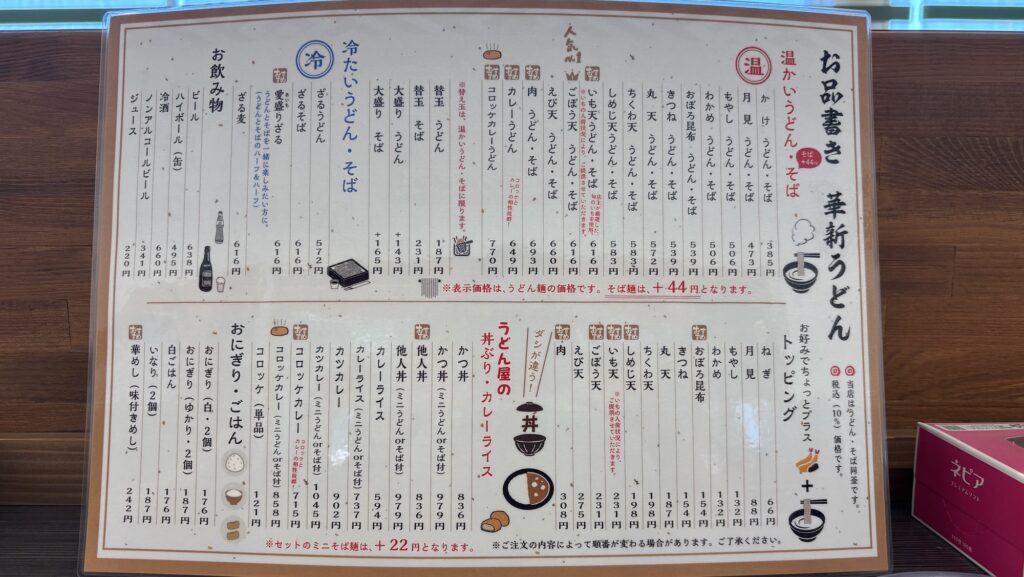 お品書き 華新うどん
温 温かいうどん・そば
そば +44円
かけ うどん・そば 385円
月見 うどん・そば 473円
もやし うどん・そば 506円
わかめ うどん・そば 506円
おぼろ昆布 うどん・そば 539円
きつね うどん・そば 539円
丸天 うどん・そば 572円
ちくわ天 うどん・そば 583円
しめじ天うどん・そば 583円
いも天うどん・そば 616円
店主が厳選した、旬のいもを使用。
※いもの入荷状況により、ご提供させていただきます。
人気No.1
ごぼう天 うどん・そば 616円
えび天 うどん・そば 660円
肉 うどん・そば 693円
カレーうどん 649円
コロッケカレーうどん 770円
コロッケとカレーの相性抜群!
※替え玉は、温かいうどん・そばに限ります。
替玉 うどん 187円
替玉 そば 231円
大盛り うどん +143円
大盛り そば +165円
冷 冷たいうどん・そば
ざるうどん 572円
ざるそば 616円
愛盛りざる 616円
あいも
うどんとそばを一緒に楽しみたい方に。
(うどんとそばのハーフ&ハーフ)
ざる麦 616円
お飲み物
ビール 638円
ハイボール(缶) 495円
冷酒 660円
ノンアルコールビール 341円
ジュース 220円
※表示価格は、うどん麺の価格です。そば麺は、+44円となります。
◎当店はうどん・そば同釜です。
◎税込(10%)価格です。
お好みでちょっとプラス
トッピング
ねぎ 66円
月見 88円
もやし 132円
わかめ 132円
おぼろ昆布 154円
きつね 154円
丸天 187円
ちくわ天 198円
しめじ天 198円
いも天 231円
※いもの入荷状況により、ご提供させていただきます。
ごぼう天 231円
えび天 275円
肉 308円
ダシが違う!
丼
うどん屋の
丼ぶり・カレーライス
かつ丼 836円
かつ丼(ミニうどんorそば付) 979円
他人丼 836円
他人丼(ミニうどんorそば付) 979円
カレーライス 594円
カレーライス(ミニうどんorそば付) 737円
カツカレー 902円
カツカレー(ミニうどんorそば付) 1045円
コロッケカレー 715円
コロッケとカレーの相性抜群!
コロッケカレー(ミニうどんorそば付) 858円
コロッケ(単品) 121円
おにぎり・ごはん
おにぎり(白・2個) 176円
おにぎり(ゆかり・2個) 187円
白ごはん 176円
いなり(2個) 187円
華めし(味付きめし) 242円
※セットのミニそば麺は、+22円となります。
※ご注文の内容によって順番が変わる場合があります。ご了承ください。
ネピア
プレミアムソフト